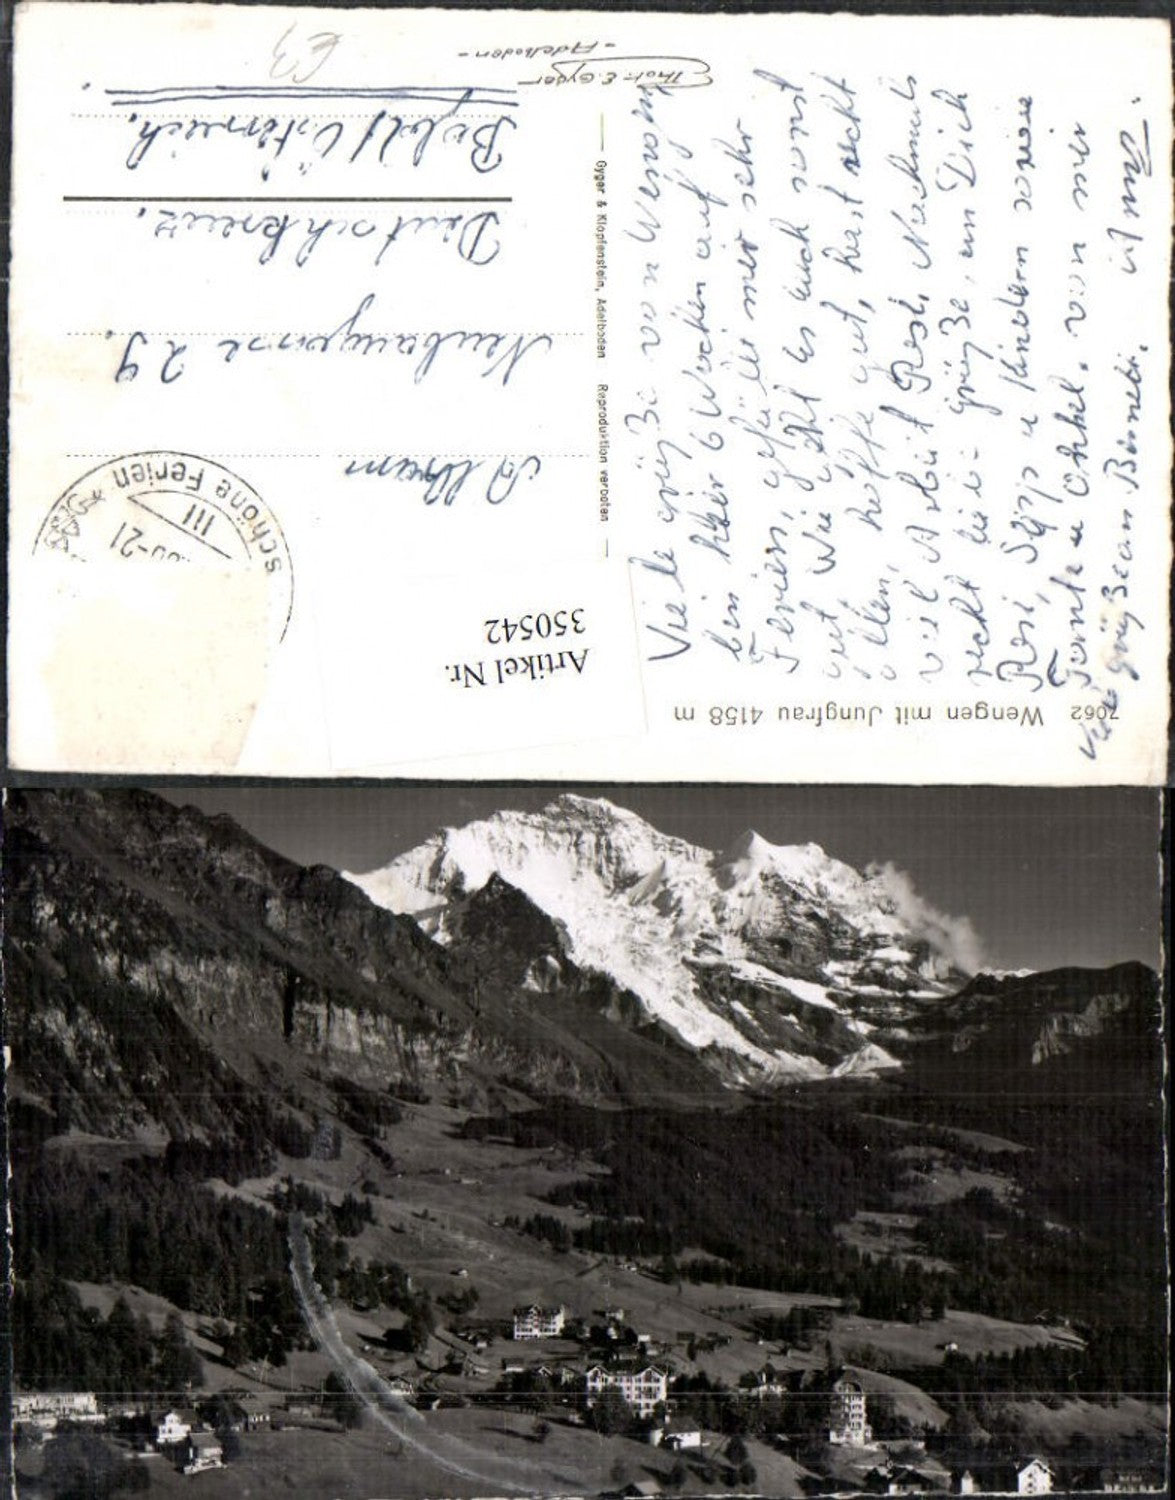 7062 Wengen mit Jungfrau 4158 m
Viele Grüße von Wengen
bin hier 6 Wochen auf
Ferien, gefällt mir sehr
gut. Wie geht es euch sonst
allen, hoffe gut, hast recht
viel Arbeit Resi. Nachmals
recht liebe Grüße, an Dich
Resi, Sepp u Kindern sowie
Tante u Onkel. von mir
Viele Grüße an
Gyger & Klopfenstein, Adelboden Reproduktion verboten
Phot. E. Gyger
- Adelboden -
schöne Ferien
III
-21
Neubaugasse 29.
Deutschkreuz.
Bgld / Österreich.
Artikel Nr.
350542